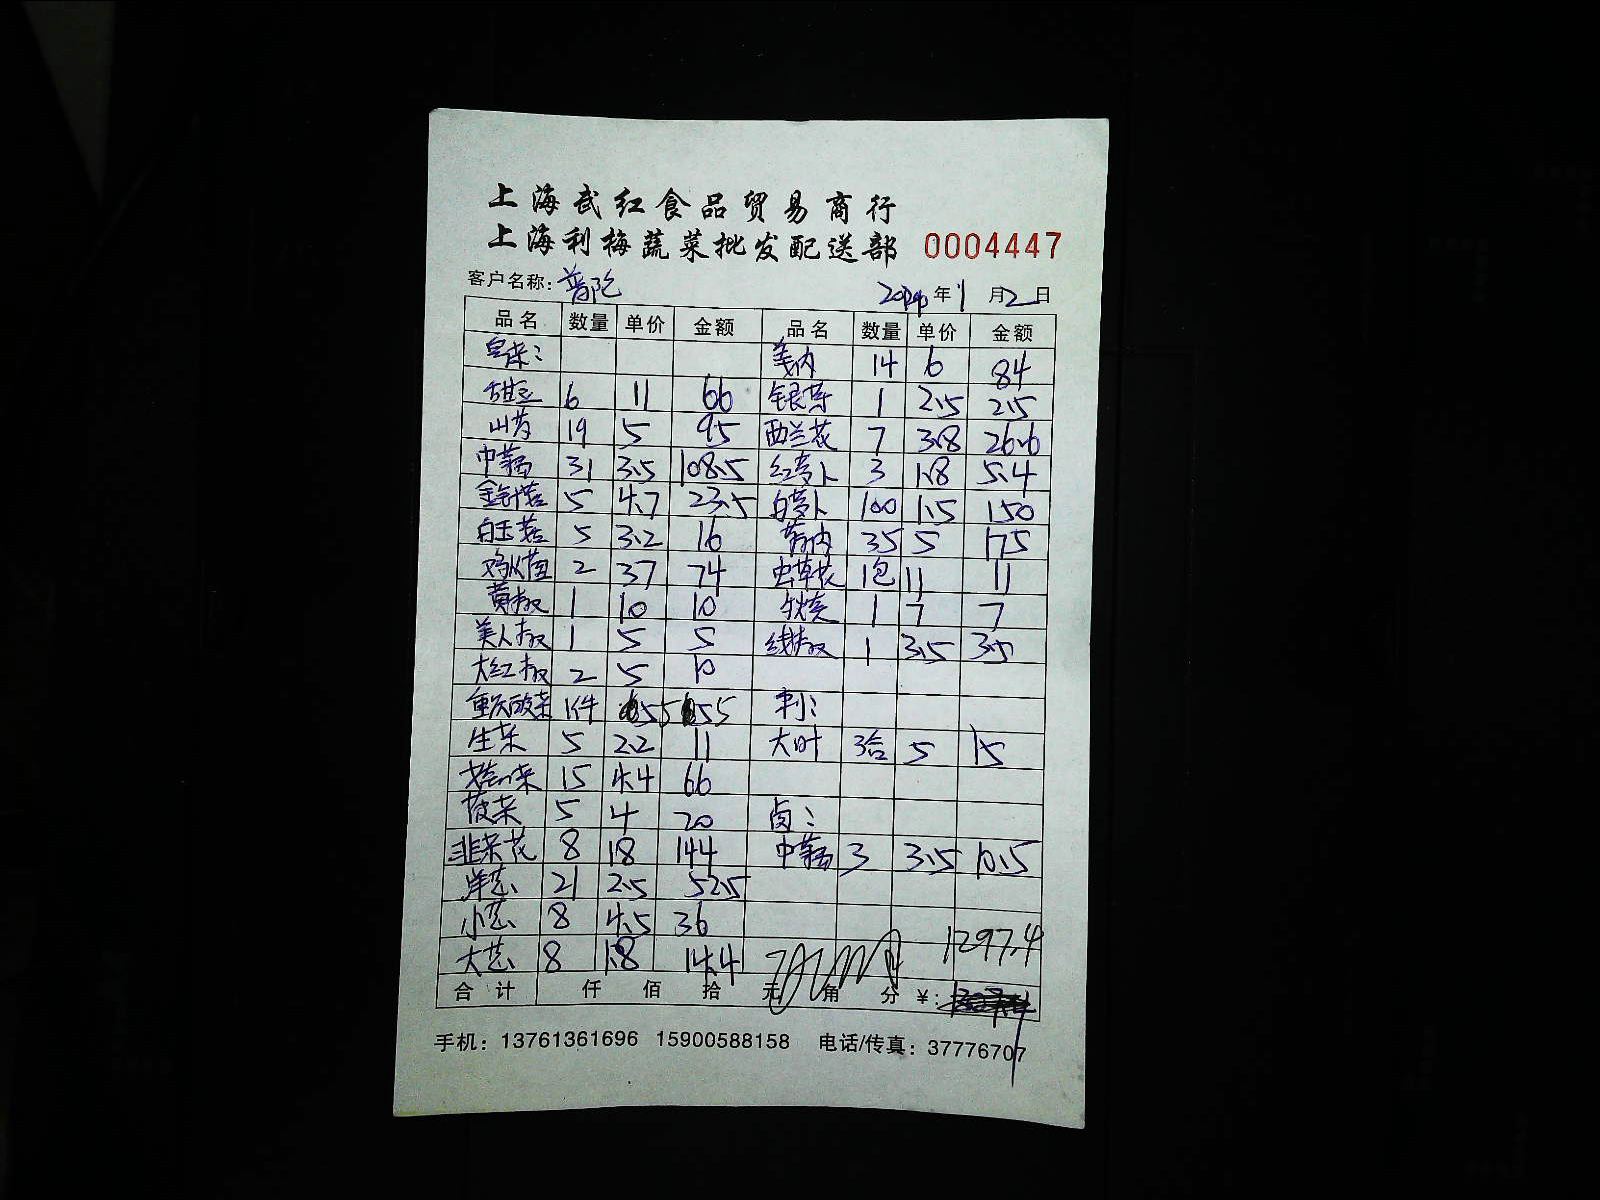 上海武红食品贸易商行
上海利梅蔬菜批发配送部 0004447
客户名称: 普陀 2024年1月2日
品名 数量 单价 金额 品名 数量 单价 金额
14 6 84
甜豆 6 11 66 银芽 1 2.5 2.5
山药 19 5 95 西兰花 7 3.8 26.6
中菇 31 3.5 108.5 红萝卜 3 1.8 5.4
金针菇 5 4.7 23.5 白萝卜 100 1.5 150
白玉菇 5 3.2 16 35 5 175
2 37 74 虫草花 1包 11 11
黄椒 1 10 10 1 7 7
美人椒 1 5 5 线椒 1 3.5 3.5
大红椒 2 5 10
重庆酸菜 1件 55 55
生菜 5 2.2 11 大叶 3合 5 15
15 4.4 66
菠菜 5 4 20 卤:
韭菜花 8 18 144 中菇 3 3.5 10.5
洋芯 21 2.5 52.5
小芯 8 4.5 36
大芯 8 1.8 14.4 1297.4
合计 仟 佰 拾 元 角 分 ¥:
手机: 13761361696 15900588158 电话/传真: 37776707